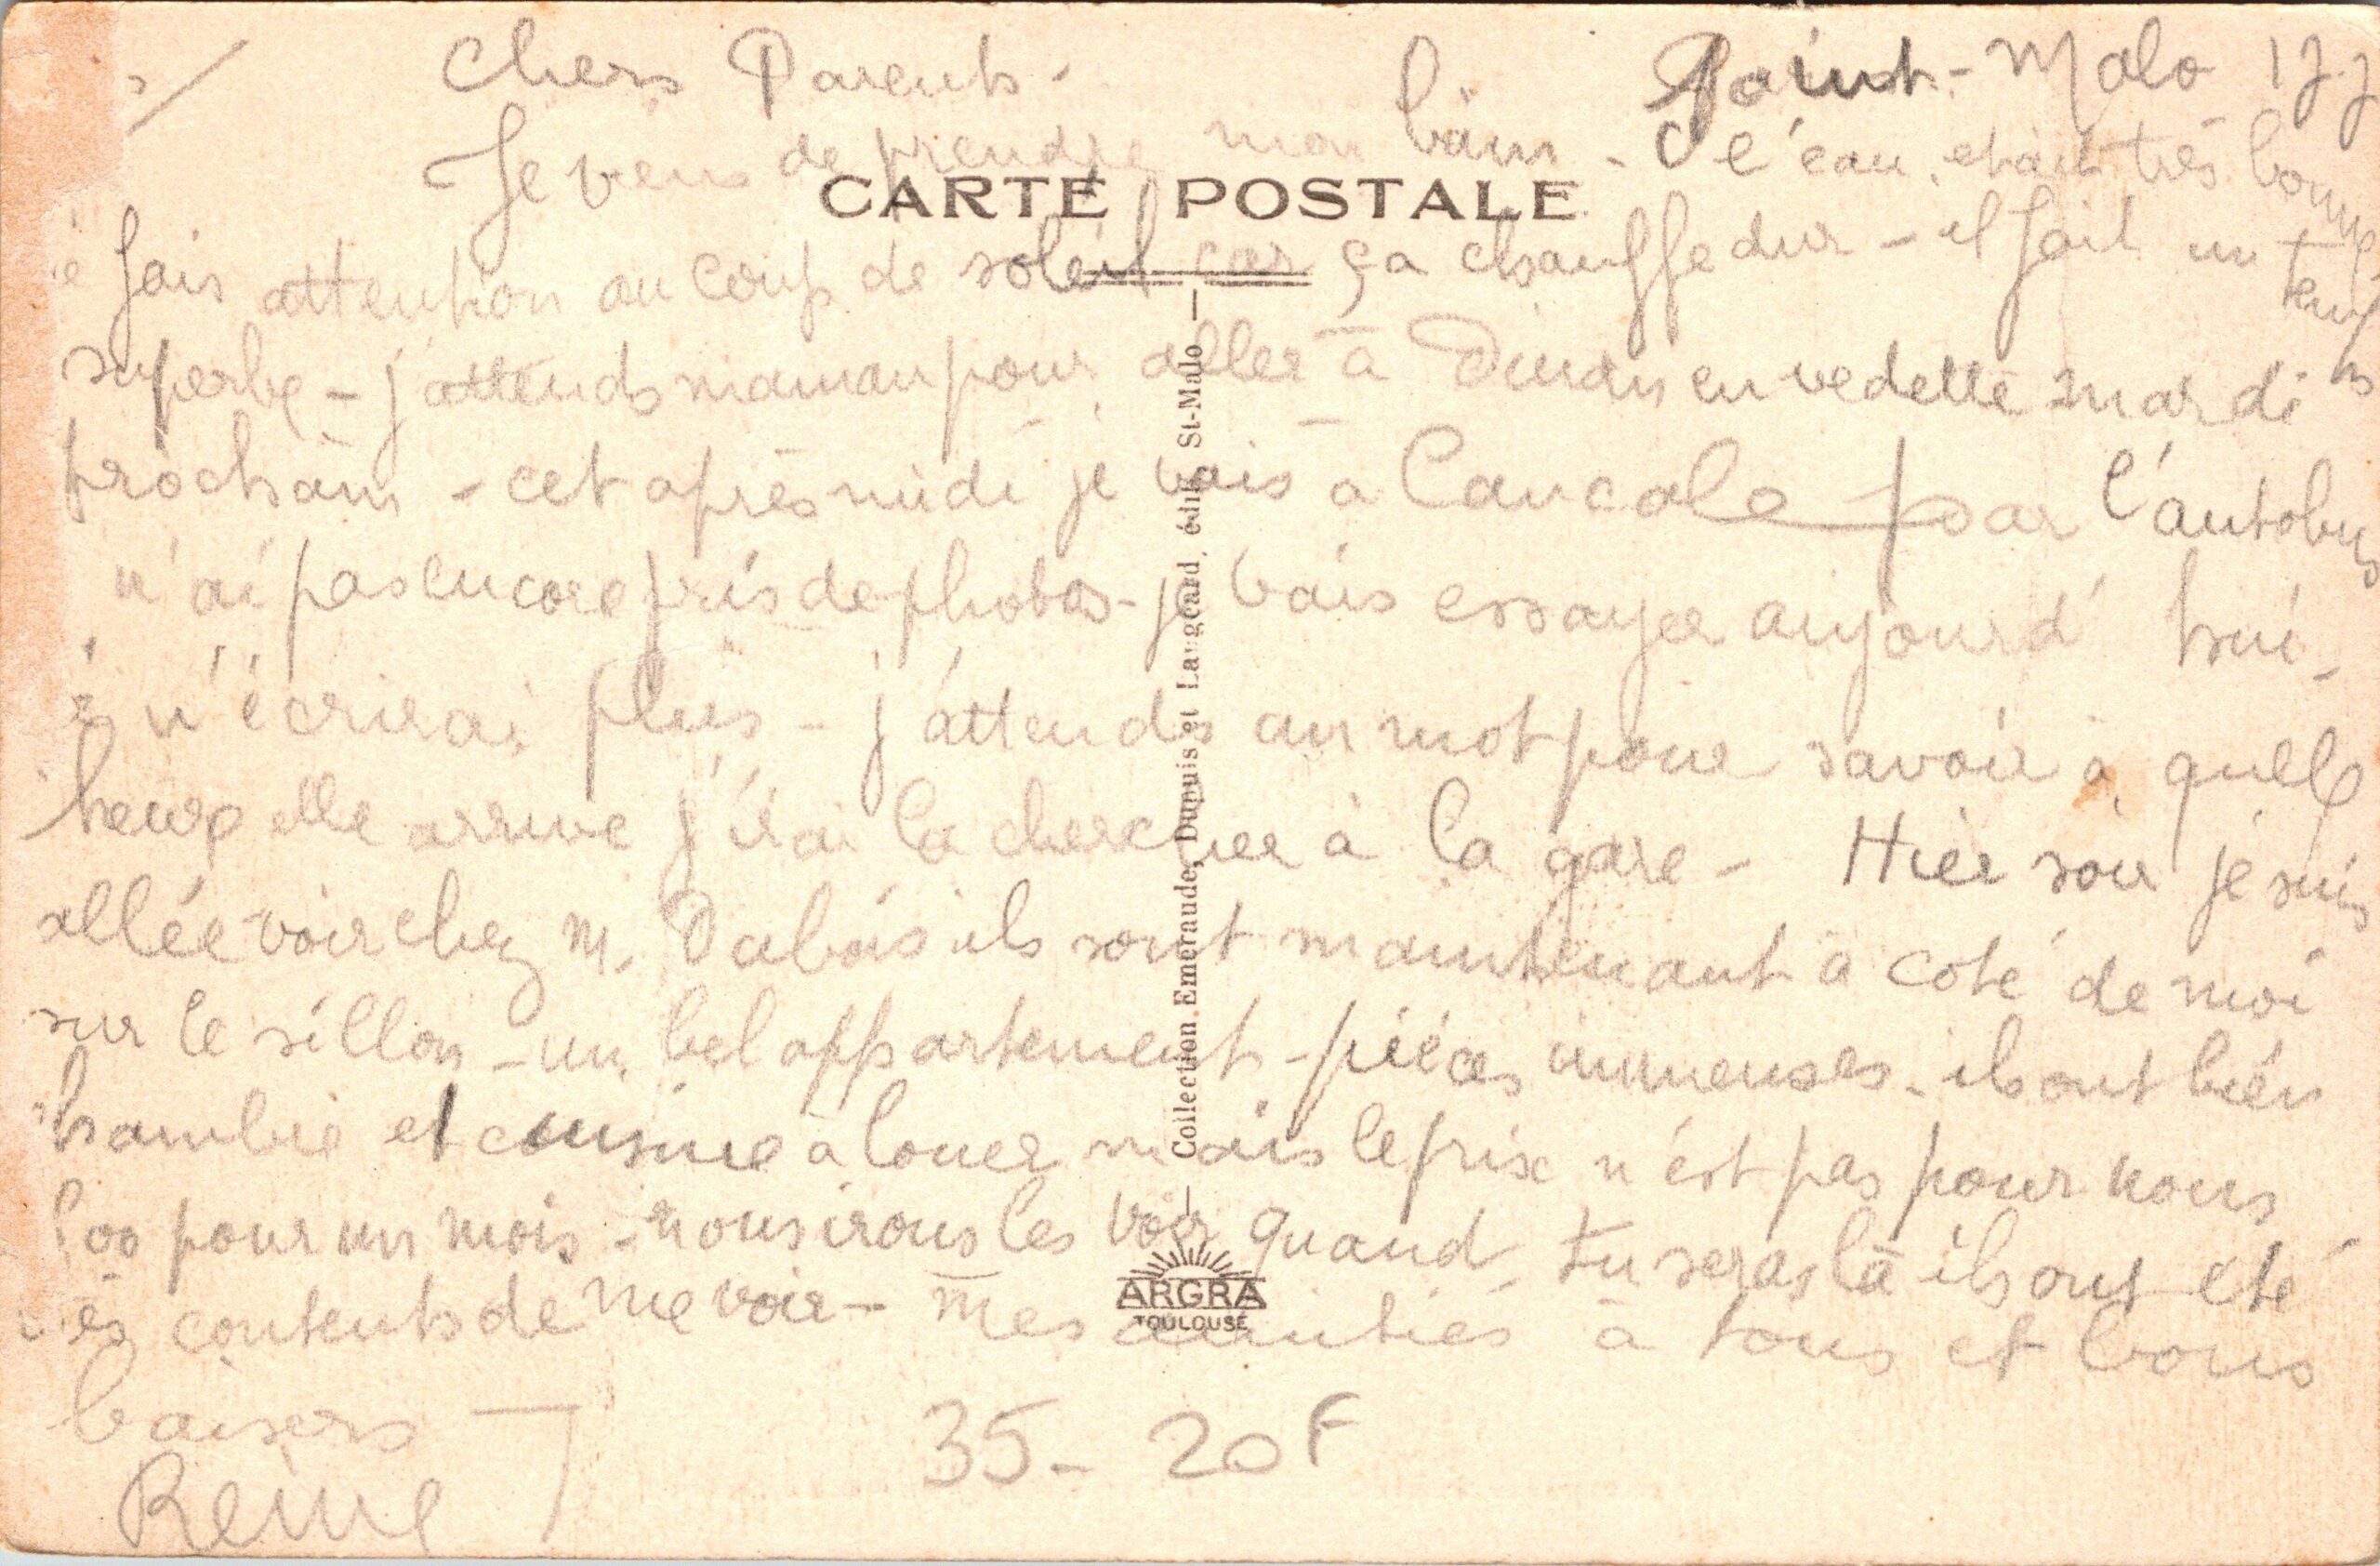 Saint-Malo 17.7
Chers Parents -
Je viens de prendre mon bain - l'eau etait très bonne
je fais attention au coup de soleil car ça chauffe dur - il fait un temps
superbe - j'attends maman pour aller à Dinan en vedette mardi
prochain - cet après midi je vais à Cancale par l'autobus
n'ai pas encore pris de photos - je vais essayer aujourd'hui -
n'écrirai plus - j'attends un mot pour savoir à quelle
heure elle arrive j'irai la chercher à la gare - Hier soir je suis
allée voir chez M. Dubois ils sont maintenant à coté de moi
sur le sillon - un bel appartement - pièces immenses - ils ont bien
chambre et cuisine à louer mais le prix n'est pas pour nous
00 pour un mois - nous irons les voir quand tu seras là ils ont été
très contents de me voir - mes amitiés à tous et bons
baisers
Reine
35 - 20F
CARTE POSTALE
Collection Emeraude, Dupuis et Laugeard, édit., St-Malo
ARGRA
TOULOUSE